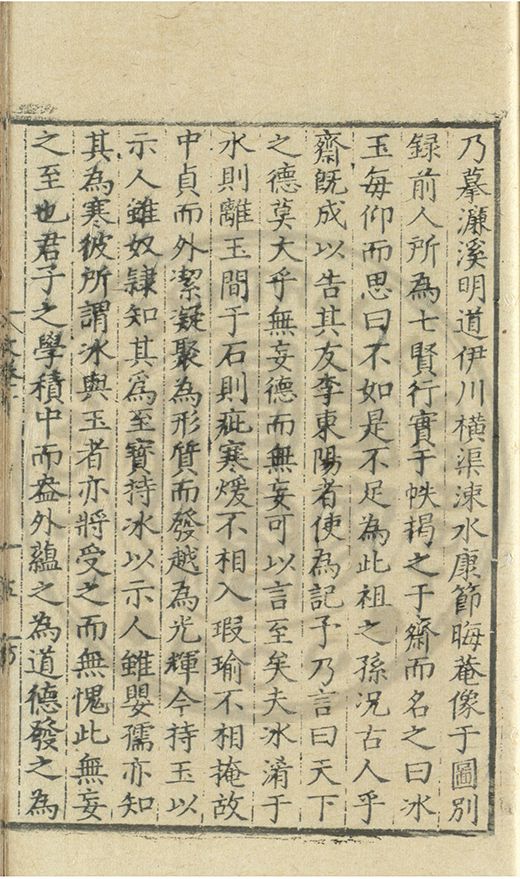 乃摹濂溪明道伊川横渠涑水康節晦菴像于圖别
録前人所為七賢行實于帙揭之于齋而名之曰冰
玉每仰而思曰不如是不足為此祖之孫况古人乎
齋旣成以告其友李東陽者使為記予乃言曰天下
之德莫大乎無妄德而無妄可以言至矣夫冰淆于
水則離玉間于石則疵寒煖不相入瑕瑜不相掩故
中貞而外潔凝聚為形質而發越為光輝今持玉以
示人雖奴隸知其爲至寳持冰以示人雖嬰孺亦知
其為寒彼所謂冰與玉者亦將受之而無愧此無妄
之至也君子之學積中而盎外蘊之為道德發之為